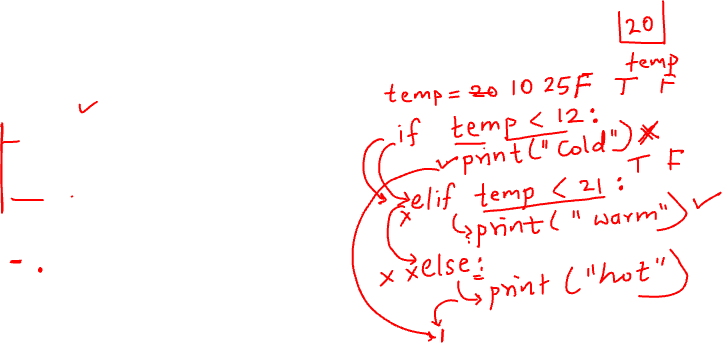 20
temp
temp = 20 10 25F T F
if temp < 12:
print("Cold")
T F
elif temp < 21:
print("warm")
else:
print ("hot")